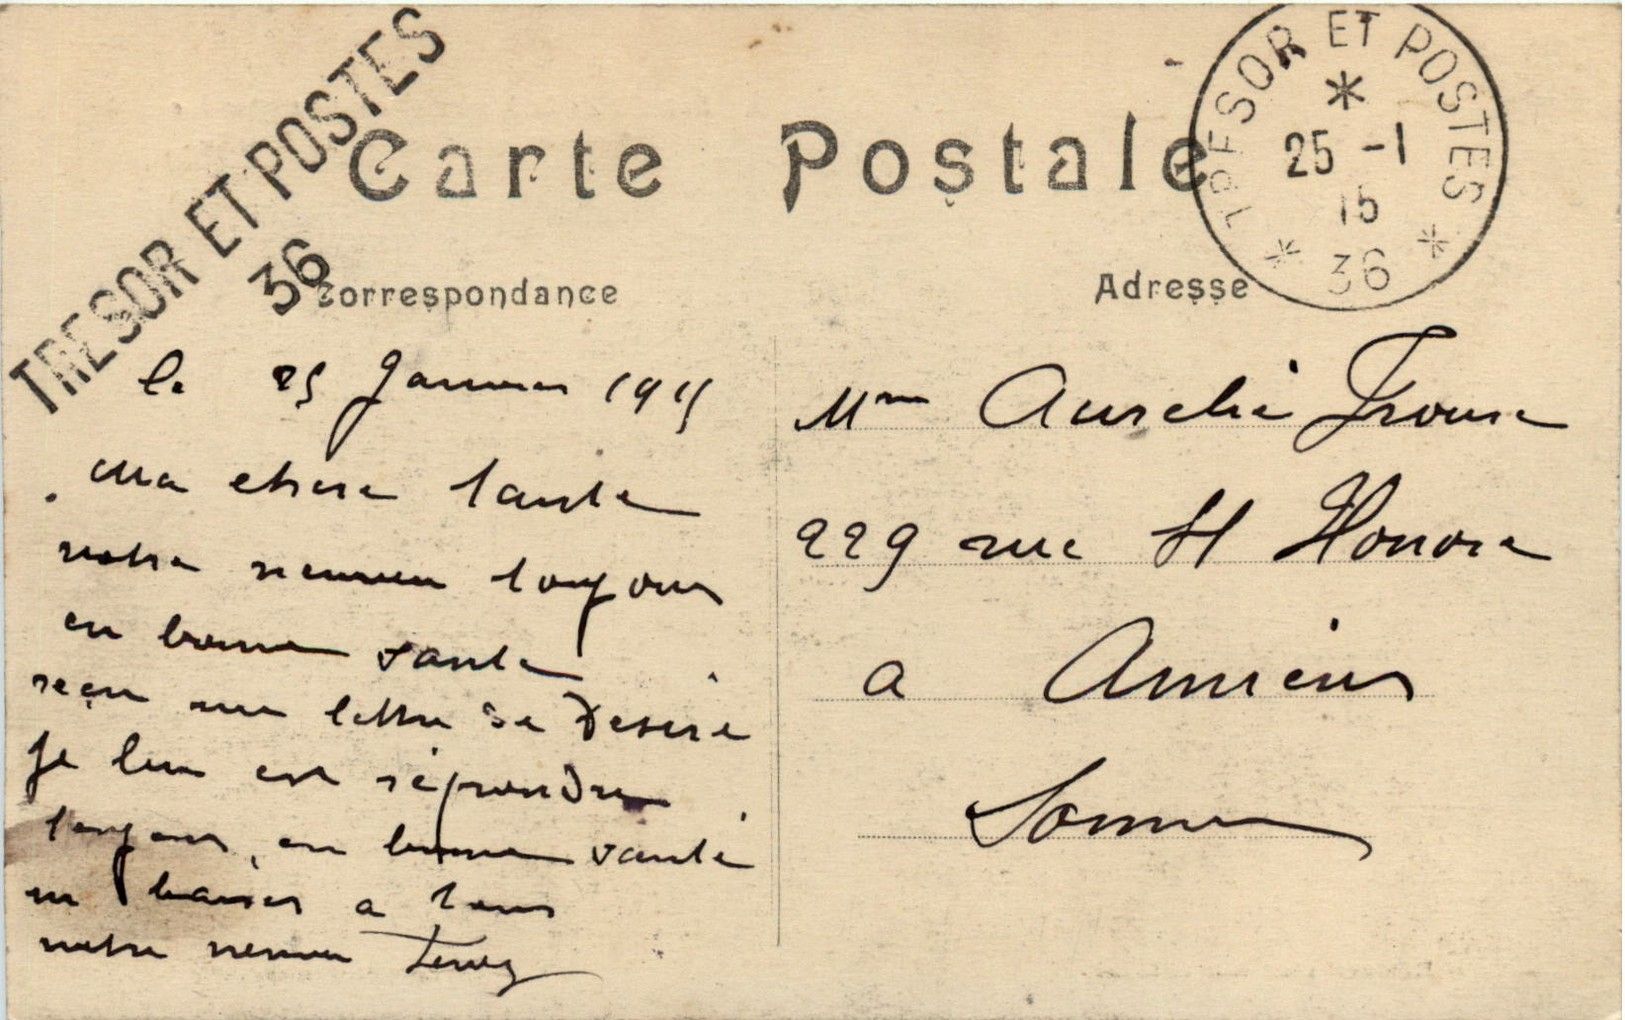 TRESOR ET POSTES
36
TRESOR ET POSTES
25 -1
15
36
Carte Postale
Correspondance
Adresse
le 25 Janvier 1915
Ma chere tante
votre neuveu toujour
en bonne sante
reçu une lettre de Desiré
je lui est répondre
toujour, en bonne santé
un baiser a tous
votre neveu
Mme Aurelie
229 rue St Honore
a Amiens
Somme